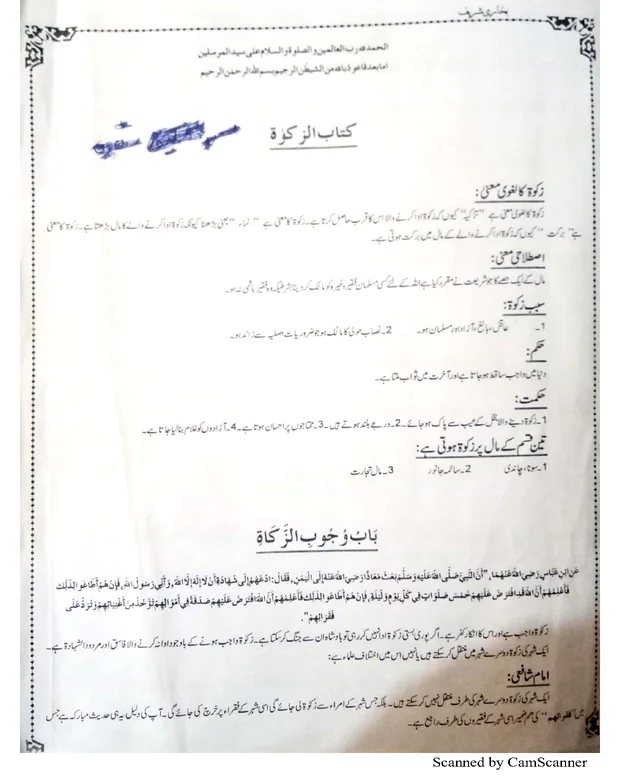 بخاری شریف
الحمدللہ رب العالمین والصلوۃ والسلام علی سید المرسلین
اما بعد فاعوذ باللہ من الشیطٰن الرجیم بسم اللہ الرحمٰن الرحیم
کتاب الزکوٰۃ
زکوٰۃ کا لغوی معنیٰ:
زکوٰۃ کا لغوی معنی ہے "تزکیہ" کیوں کہ زکوٰۃ ادا کرنے والا اس کا قرب حاصل کرتا ہے۔ زکوٰۃ کا معنی ہے "نماء" یعنی بڑھنا کیونکہ زکوٰۃ ادا کرنے والے کا مال بڑھتا ہے۔ زکوٰۃ کا معنی
ہے "برکت" کیوں کہ زکوٰۃ ادا کرنے والے کے مال میں برکت ہوتی ہے۔
اصطلاحی معنی:
مال کے ایک حصے کا جو شریعت نے مقرر کیا ہے اللہ کے لئے کسی مسلمان فقیر وغیرہ کو مالک کر دینا بشرطیکہ وہ فقیر ہاشمی نہ ہو۔
سبب زکوٰۃ:
1۔ عاقل، بالغ، آزاد اور مسلمان ہو۔ 2۔ نصاب حولی کا مالک ہو جو ضروریات اصلیہ سے زائد ہو۔
حکم:
دنیا میں واجب ساقط ہو جاتا ہے اور آخرت میں ثواب ملتا ہے۔
حکمت:
1۔ زکوٰۃ دینے والا بخل کے عیب سے پاک ہو جائے۔ 2۔ درجے بلند ہوتے ہیں۔ 3۔ محتاجوں پر احسان ہوتا ہے۔ 4۔ آزادوں کو غلام بنا لیا جاتا ہے۔
تین قسم کے مال پر زکوٰۃ ہوتی ہے:
1۔ سونا، چاندی 2۔ سائمہ جانور 3۔ مال تجارت
بَابُ وُجُوبِ الزَّكَاةِ
عَنِ ابْنِ عَبَّاسٍ رَضِيَ اللهُ عَنْهُمَا، "أَنَّ النَّبِيَّ صَلَّى اللهُ عَلَيْهِ وَسَلَّمَ بَعَثَ مُعَاذًا رَضِيَ اللهُ عَنْهُ إِلَى الْيَمَنِ، فَقَالَ: ادْعُهُمْ إِلَى شَهَادَةِ أَنْ لَا إِلَهَ إِلَّا اللهُ، وَأَنِّي رَسُولُ اللهِ، فَإِنْ هُمْ أَطَاعُوا لِذَلِكَ
فَأَعْلِمْهُمْ أَنَّ اللهَ قَدِ افْتَرَضَ عَلَيْهِمْ خَمْسَ صَلَوَاتٍ فِي كُلِّ يَوْمٍ وَلَيْلَةٍ، فَإِنْ هُمْ أَطَاعُوا لِذَلِكَ فَأَعْلِمْهُمْ أَنَّ اللهَ افْتَرَضَ عَلَيْهِمْ صَدَقَةً فِي أَمْوَالِهِمْ تُؤْخَذُ مِنْ أَغْنِيَائِهِمْ وَتُرَدُّ عَلَى
فُقَرَائِهِمْ".
زکوٰۃ واجب ہے اور اس کا انکار کفر ہے۔ اگر پوری بستی زکوٰۃ ادا نہیں کر رہی تو بادشاہ ان سے جنگ کر سکتا ہے۔ زکوٰۃ واجب ہونے کے باوجود ادا نہ کرنے والا فاسق اور مردود الشہادۃ ہے۔
ایک شہر کی زکوٰۃ دوسرے شہر میں منتقل کر سکتے ہیں یا نہیں اس میں اختلاف علماء ہے:
امام شافعی:
ایک شہر کی زکوٰۃ دوسرے شہر کی طرف منتقل نہیں کر سکتے ہیں۔ بلکہ جس شہر کے امراء سے زکوٰۃ لی جائے گی اسی شہر کے فقراء پر خرچ کی جائے گی۔ آپ کی دلیل یہ ہی حدیث مبارکہ ہے جس
میں "فقرائهم" کی ھم ضمیر اسی شہر کے فقیروں کی طرف راجع ہے۔
Scanned by CamScanner